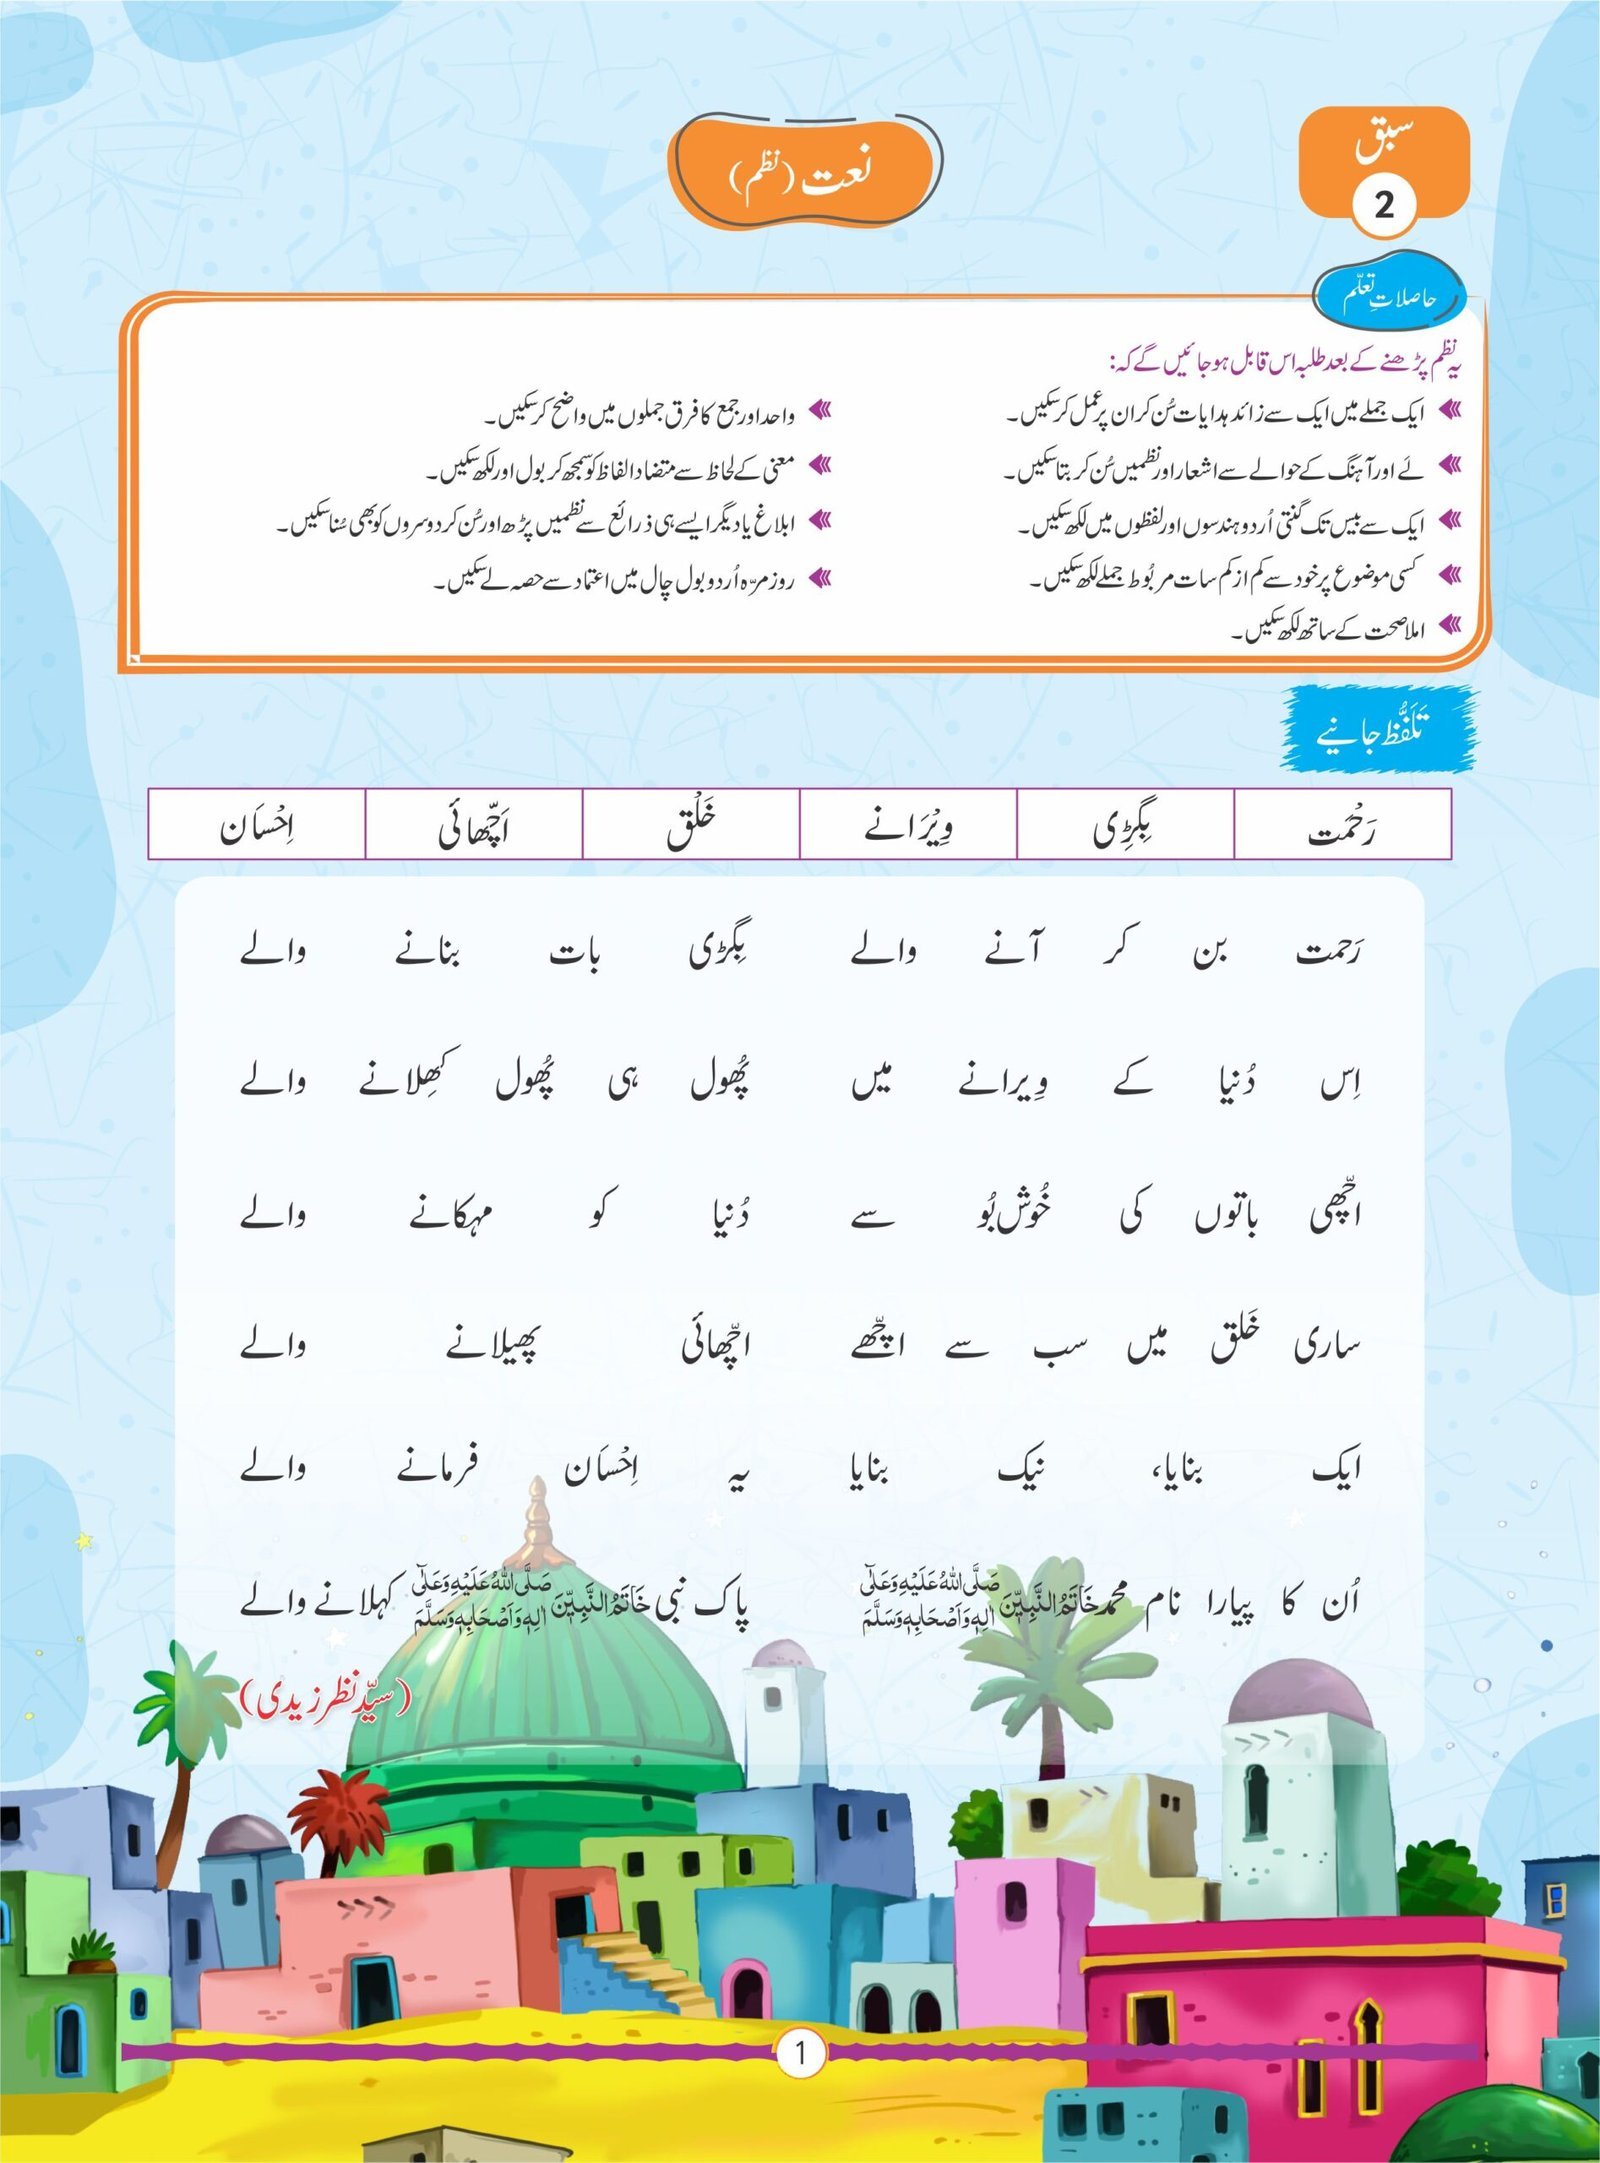 سبق
2
نعت (نظم)
حاصلاتِ تعلّم
یہ نظم پڑھنے کے بعد طلبہ اس قابل ہو جائیں گے کہ:
ایک جملے میں ایک سے زائد ہدایات سُن کر ان پر عمل کر سکیں۔
لَے اور آہنگ کے حوالے سے اشعار اور نظمیں سُن کر بتا سکیں۔
ایک سے بیس تک گنتی اُردو ہندسوں اور لفظوں میں لکھ سکیں۔
کسی موضوع پر خود سے کم از کم سات مربُوط جملے لکھ سکیں۔
املا صحت کے ساتھ لکھ سکیں۔
واحد اور جمع کا فرق جملوں میں واضح کر سکیں۔
معنی کے لحاظ سے متضاد الفاظ کو سمجھ کر بول اور لکھ سکیں۔
ابلاغ یا دیگر ایسے ہی ذرائع سے نظمیں پڑھ اور سُن کر دوسروں کو بھی سُنا سکیں۔
روزمرّہ اُردو بول چال میں اعتماد سے حصہ لے سکیں۔
تَلَفُّظ جانیے
رَحْمَت بِگڑِی وِیْرَانے خَلْق اَچّھائی اِحْسَان
رَحمت بن کر آنے والے بِگڑی بات بنانے والے
اِس دُنیا کے وِیرانے میں پُھول ہی پُھول کِھلانے والے
اچّھی باتوں کی خُوش بُو سے دُنیا کو مہکانے والے
ساری خَلق میں سب سے اچّھے اچّھائی پھیلانے والے
ایک بنایا، نیک بنایا یہ اِحْسَان فرمانے والے
اُن کا پیارا نام محمد خَاتَمُ النَّبِیّٖنَ صَلَّی اللّٰہُ عَلَیْہِ وَعَلٰٓی اٰلِہٖ وَاَصْحَابِہٖ وَسَلَّمَ پاک نبی خَاتَمُ النَّبِیّٖنَ صَلَّی اللّٰہُ عَلَیْہِ وَعَلٰٓی اٰلِہٖ وَاَصْحَابِہٖ وَسَلَّمَ کہلانے والے
(سیّد نظر زیدی)
1